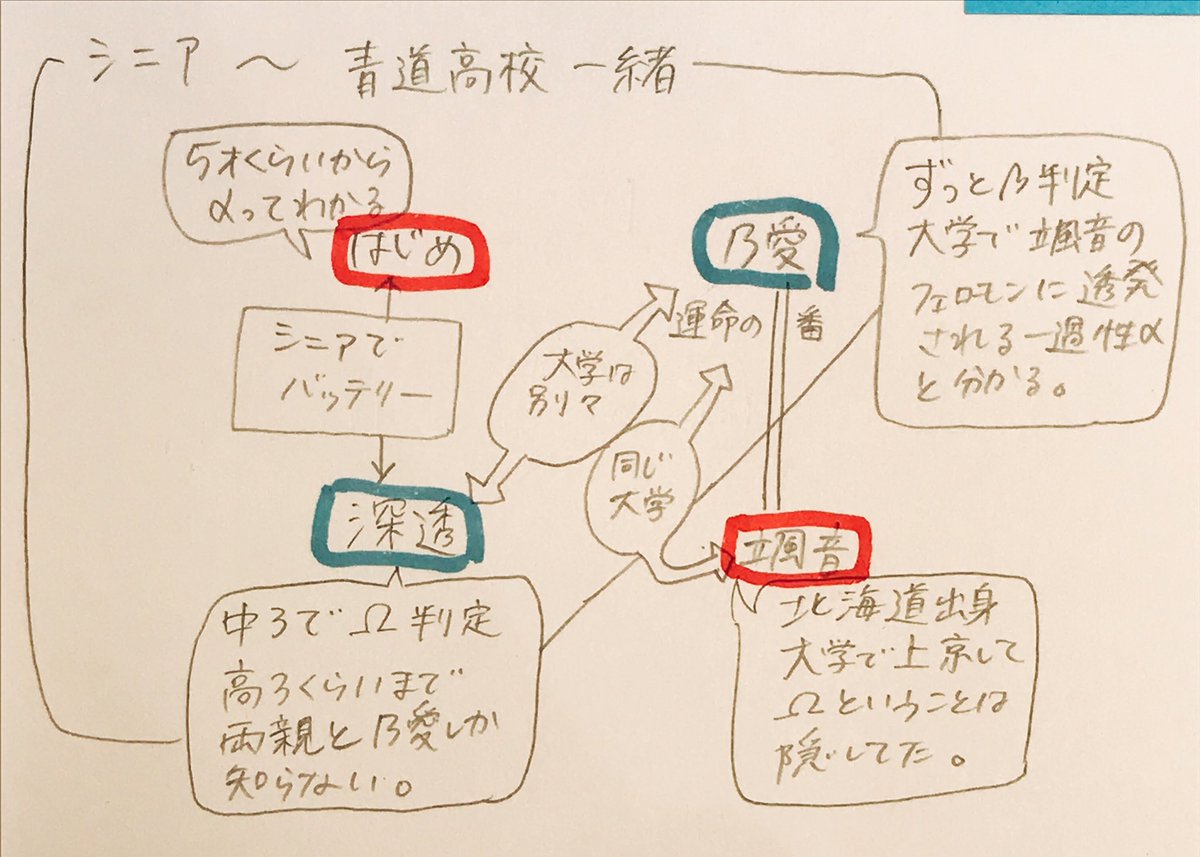 シニア 〜 青道高校一緒
5才くらいから
αってわかる
はじめ
乃愛
ずっと乃判定
大学で颯音の
フェロモンに透発
される一過性α
と分かる。
シニアで
バッテリー
大学は
別々
運命の 番
同じ
大学
深透
颯音
中3でΩ判定
高3くらいまで
両親と乃愛しか
知らない。
北海道出身
大学で上京して
Ωということは
隠してた。